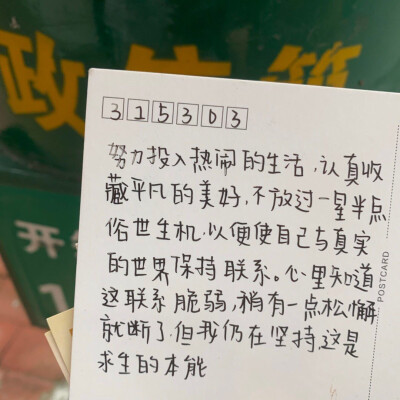 政信筒
开
1
315303
努力投入热闹的生活,认真收
藏平凡的美好,不放过一星半点
俗世生机,以便使自己与真实
的世界保持联系。心里知道
这联系脆弱,稍有一点松懈
就断了.但我仍在坚持,这是
求生的本能
POSTCARD